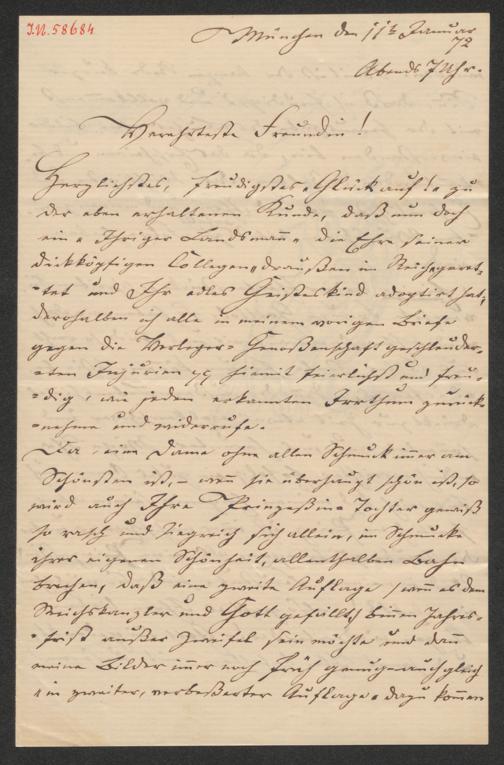 J.N. 58684
München den 11t Januar
72
Abends 7 Uhr.
Verehrteste Freundin!
Herzlichstes, freudigstes „Glück auf!“ zu
der eben erhaltenen Kunde, daß nun doch
ein „Ihriger Landsmann“ die Ehre seiner
dickköpfigen Collegen „draußen im Reich“ geret-
-tet und Ihr edles Geisteskind adoptirt hat,
derohalben ich alle in meinem vorigen Briefe
gegen die Verleger-Genoßenschaft geschleuder-
-ten Injurien hiemit feierlichst und freu-
-dig, wie jeden erkannten Irrthum zurück-
-nehme und widerrufe.
Da eine Dame ohne allen Schmuck immer am
Schönsten ist, – wenn sie überhaupt schön ist, so
wird auch Ihre Prinzessin-Tochter gewiß
so rasch und siegreich sich allein, im Schmucke
ihrer eigenen Schönheit, allenthalben Bahn
brechen, daß eine zweite Auflage /wenn es dem
Reichskanzler und Gott gefällt/ binnen Jahres-
-frist außer Zweifel sein möchte und dann
meine Bilder immer noch früh genug – auch gleich
in zweiter, verbeßerter Auflage – dazu kommen